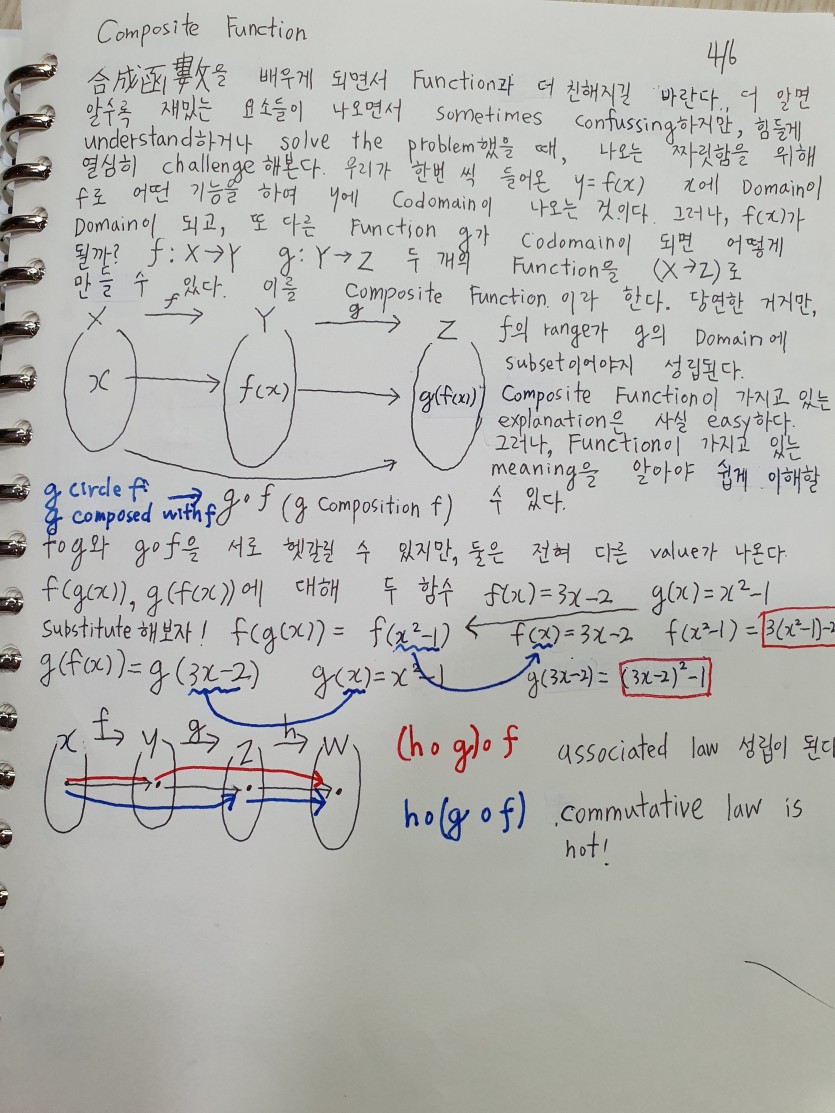 Composite Function
4/6
合成函數을 배우게 되면서 Function과 더 친해지길 바란다. 더 알면
알수록 재밌는 요소들이 나오면서 sometimes confussing하지만, 힘들게
understand하거나 solve the problem했을 때, 나오는 짜릿함을 위해
열심히 challenge해본다. 우리가 한번 씩 들어온 y=f(x) x에 Domain이
f로 어떤 기능을 하여 y에 Codomain이 나오는 것이다. 그러나, f(x)가
Domain이 되고, 또 다른 Function g가 Codomain이 되면 어떻게
될까? f:X→Y g:Y→Z 두 개의 Function을 (X→Z)로
만들 수 있다. 이를 Composite Function 이라 한다. 당연한 거지만,
X f → Y g → Z
f의 range가 g의 Domain에
subset이어야지 성립된다.
x → f(x) → g(f(x))
Composite Function이 가지고 있는
explanation은 사실 easy하다.
그러나, Function이 가지고 있는
meaning을 알아야 쉽게 이해할
수 있다.
g circle f
g composed with f → g∘f (g Composition f)
f∘g와 g∘f을 서로 헷갈릴 수 있지만, 둘은 전혀 다른 value가 나온다.
f(g(x)), g(f(x))에 대해 두 함수 f(x)=3x-2 g(x)=x²-1
Substitute 해보자! f(g(x)) = f(x²-1) ← f(x)=3x-2 f(x²-1) = 3(x²-1)-2
g(f(x))=g(3x-2) g(x)=x²-1 g(3x-2) = (3x-2)²-1
X f → Y g → Z h → W
(h∘g)∘f associated law 성립이 된다
h∘(g∘f) .commutative law is
not!